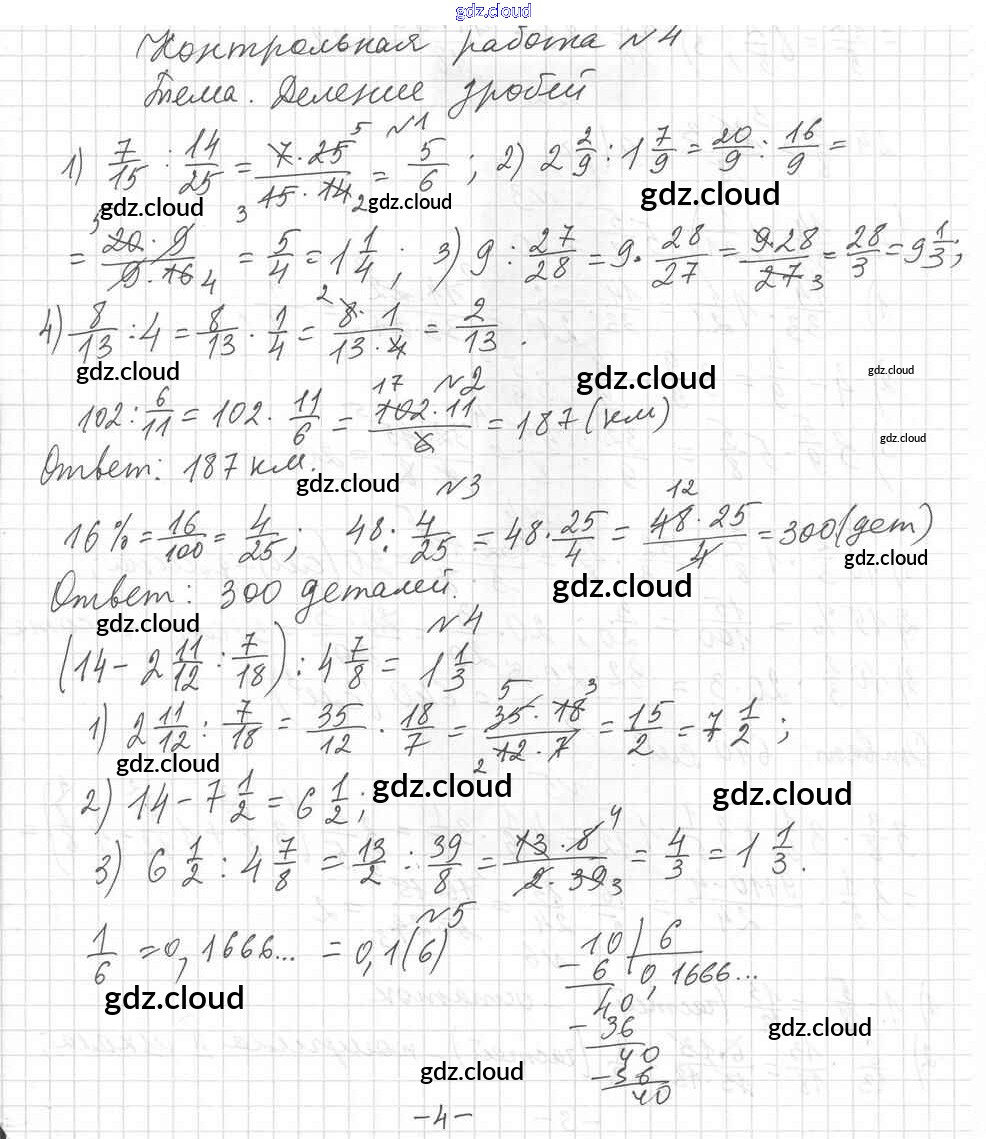 gdz.cloud
Контрольная работа №4
Тема. Деление дробей
№1
1) 7/15 : 14/25 = 7·25/15·14 = 5/6 ; 2) 2 2/9 : 1 7/9 = 20/9 : 16/9 =
gdz.cloud gdz.cloud gdz.cloud
= 20·9/9·16 = 5/4 = 1 1/4 ; 3) 9 : 27/28 = 9 · 28/27 = 9·28/27 = 28/3 = 9 1/3 ;
4) 8/13 : 4 = 8/13 · 1/4 = 8·1/13·4 = 2/13 .
gdz.cloud gdz.cloud gdz.cloud
№2
102 : 6/11 = 102 · 11/6 = 102·11/6 = 187 (км)
gdz.cloud
Ответ: 187 км.
gdz.cloud
№3
16% = 16/100 = 4/25 ; 48 : 4/25 = 48 · 25/4 = 48·25/4 = 300 (дет)
gdz.cloud
Ответ: 300 деталей.
gdz.cloud gdz.cloud
№4
(14 - 2 11/12 : 7/18) : 4 7/8 = 1 1/3
1) 2 11/12 : 7/18 = 35/12 · 18/7 = 35·18/12·7 = 15/2 = 7 1/2 ;
gdz.cloud gdz.cloud gdz.cloud
2) 14 - 7 1/2 = 6 1/2 ;
3) 6 1/2 : 4 7/8 = 13/2 : 39/8 = 13·8/2·39 = 4/3 = 1 1/3 .
№5
1/6 = 0,1666... = 0,1(6)
gdz.cloud
10 | 6
- 6 0,1666...
40
- 36
gdz.cloud
40
- 36
gdz.cloud
40
-4-